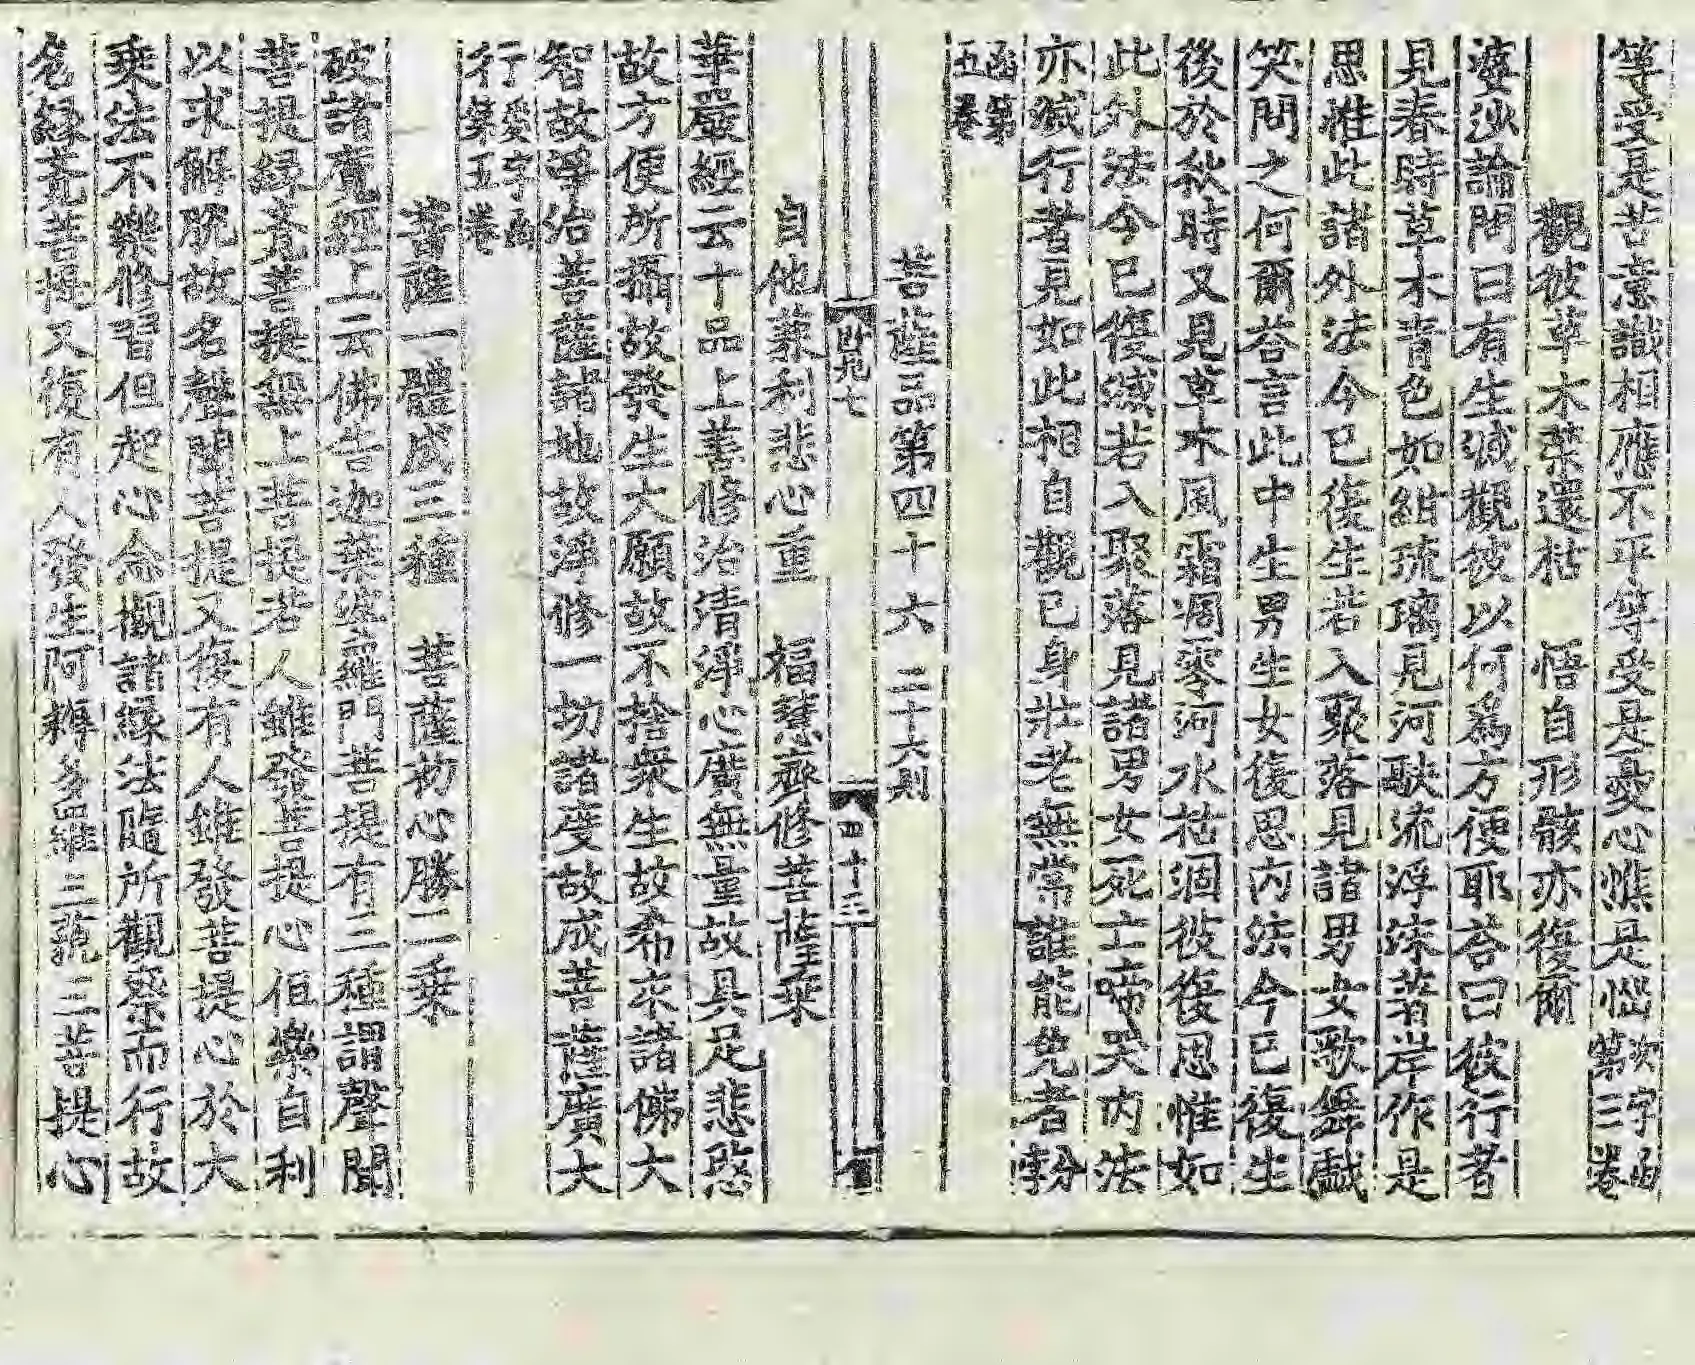 等受是苦意識相應不平等受是憂心憔是惱次字函第三卷
觀彼草木葉還枯　悟自形骸亦復爾
婆沙論問曰有生滅觀彼以何爲方便耶荅曰彼行者
見春時草木青色如紺琉璃見河駛流浮沫着岸作是
思惟此諸外法今已復生若入聚落見諸男女歌舞戲
笑問之何爾荅言此中生男生女復思內法今已復生
後於秋時又見草木風霜凋零河水枯涸彼復思惟如
此外法今已復滅若入聚落見諸男女死亡啼哭內法
亦滅行者見如此相自觀已身壯老無常誰能免者𥸸
函第五卷
菩薩品第四十六三十六則
四十三
自他兼利悲心重　福慧齊修菩薩乘
華嚴經云十品上善修治清淨心廣無量故具足悲愍
故方便所攝故發生大願故不捨衆生故希求諸佛大
智故淨治菩薩諸地故淨修一切諸度故成菩薩廣大
行愛字函第五卷
菩薩一體成三種　菩薩初心勝二乘
破諸魔經上云佛告迦葉婆羅門菩提有三種謂聲聞
菩提緣覺菩提無上菩提若人雖發菩提心但樂自利
以求解脫故名聲聞菩提又復有人雖發菩提心於大
乘法不樂修習但起心念觀諸緣法隨所觀察而行故
名緣覺菩提又復有人發生阿耨多羅三藐三菩提心